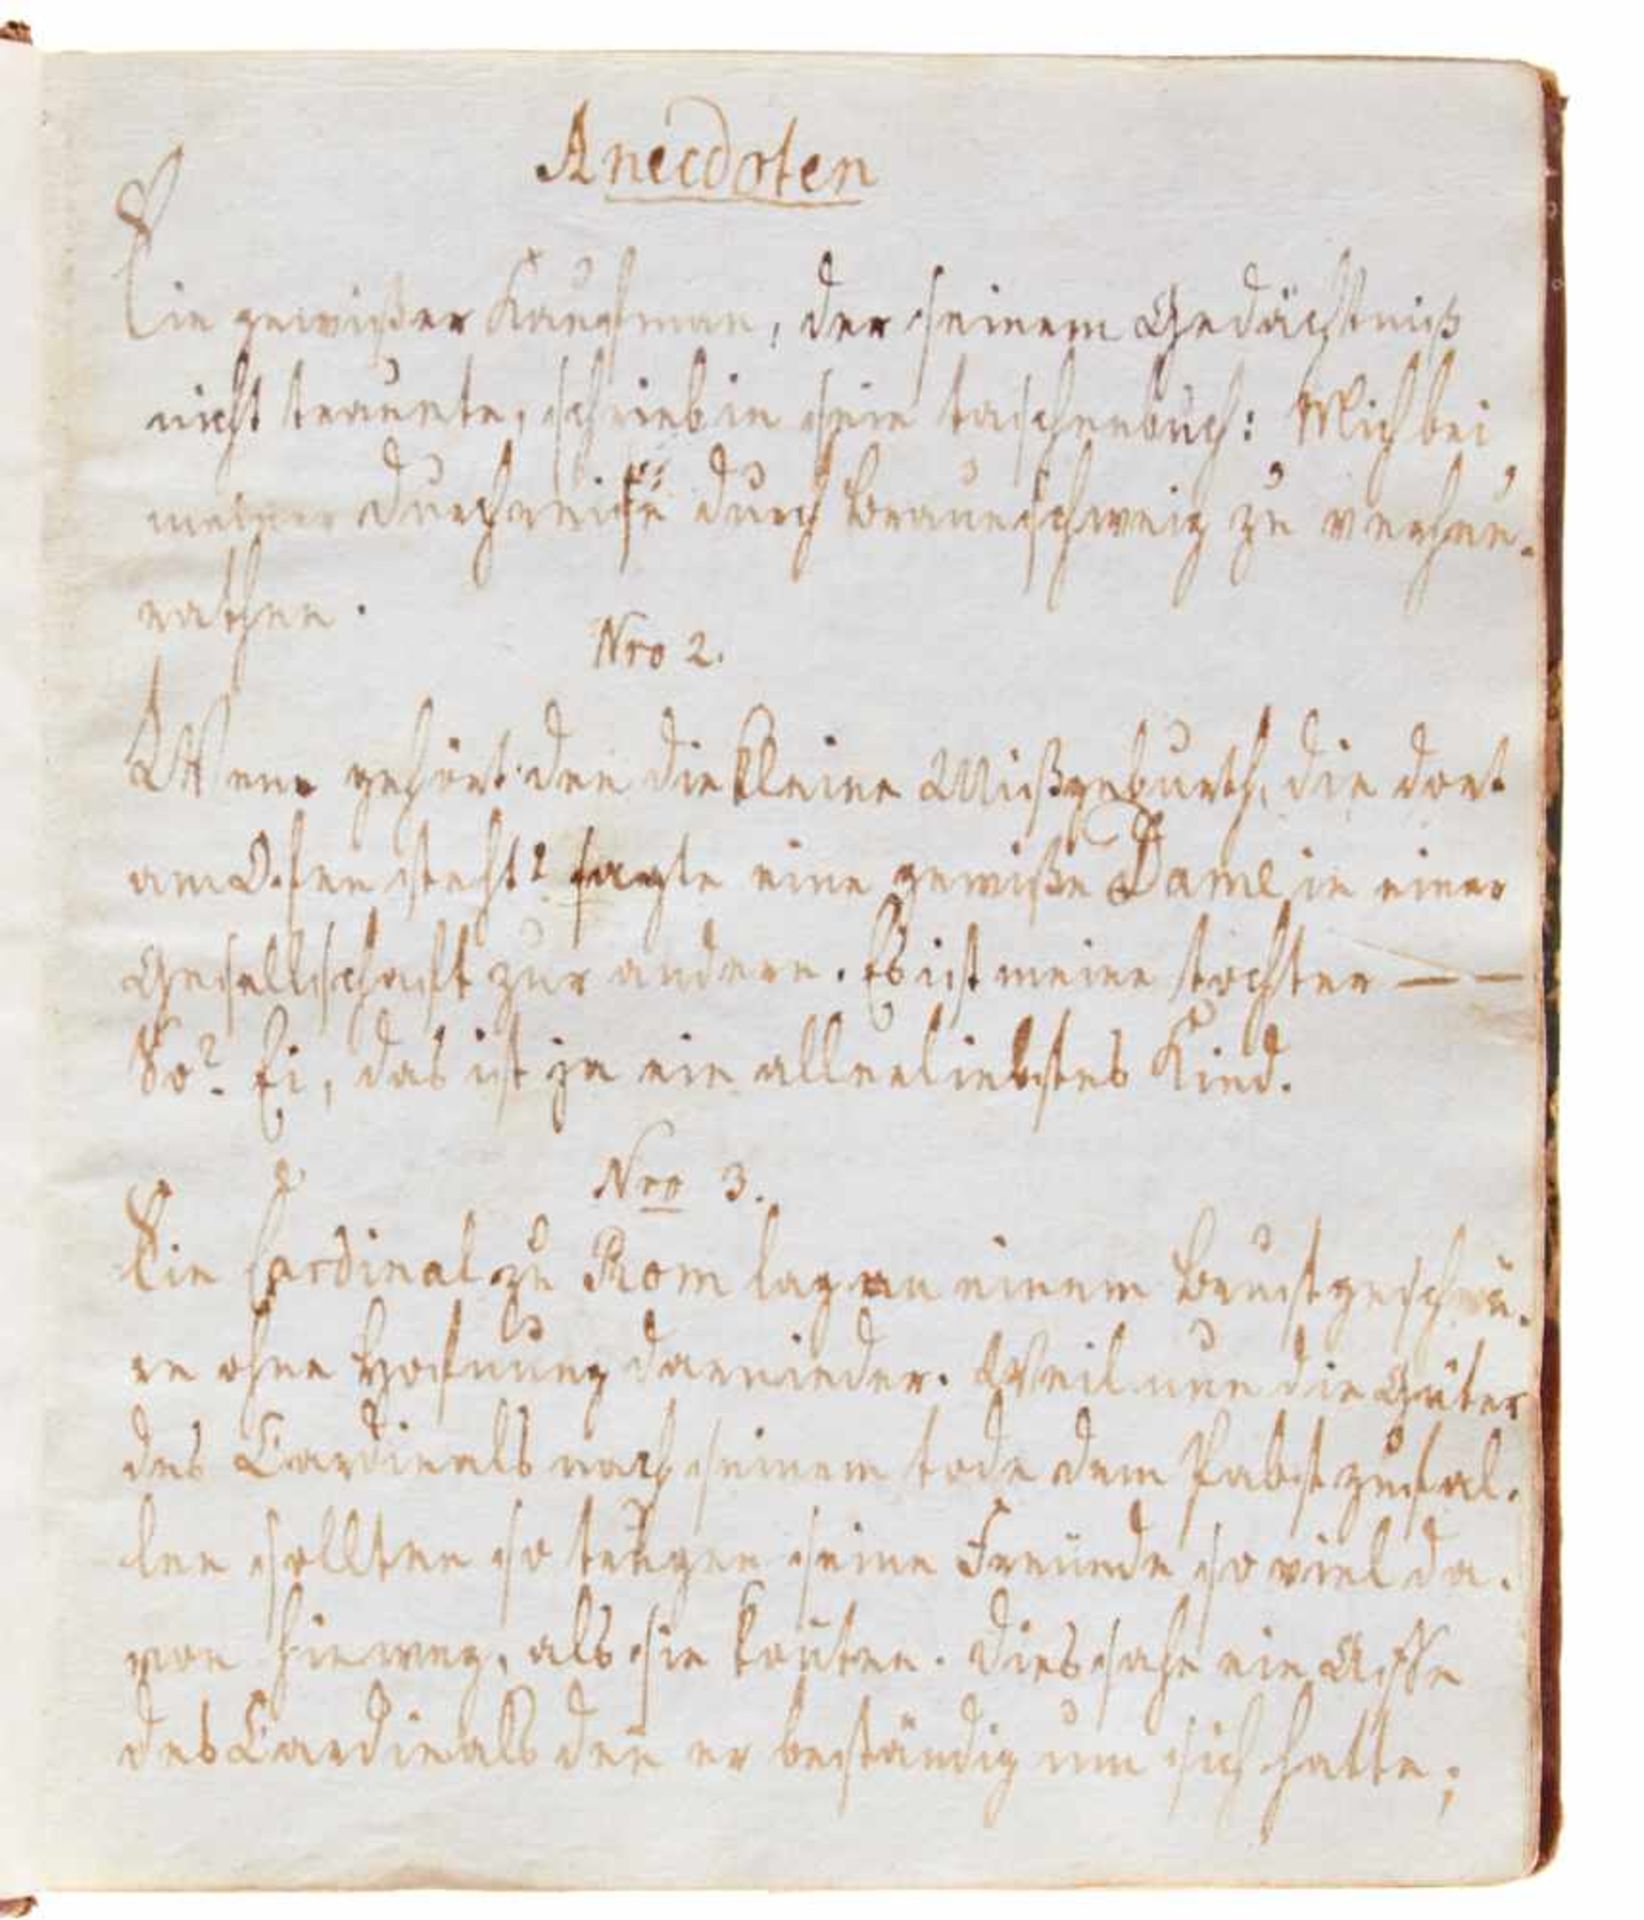 Anecdoten
Ein gewißer Kaufman, der seinem Gedächtniß
nicht trauete, schrieb in sein taschenbuch: Mich bei
meiner durchreise durch Braunschweig zu verheu-
rathen.
Nro 2.
Wem gehört den die kleine Mißgeburth, die dort
am Ofen steht? sagte eine gewiße Dame in einer
Gesellschaft zur andern. Es ist meine tochter — —
So? Ei, das ist ja ein allerliebstes Kind.
Nro 3.
Ein Cardinal zu Rom lag an einem Brustgeschwü-
re ohne Hofnung darnieder. Weil nun die Güter
des Cardinals nach seinem tode dem Pabst zufal-
len sollten so trugen seine Freunde so viel da-
von hinweg, als sie konten. Dies sahe ein Affe
des Cardinals den er beständig um sich hatte;